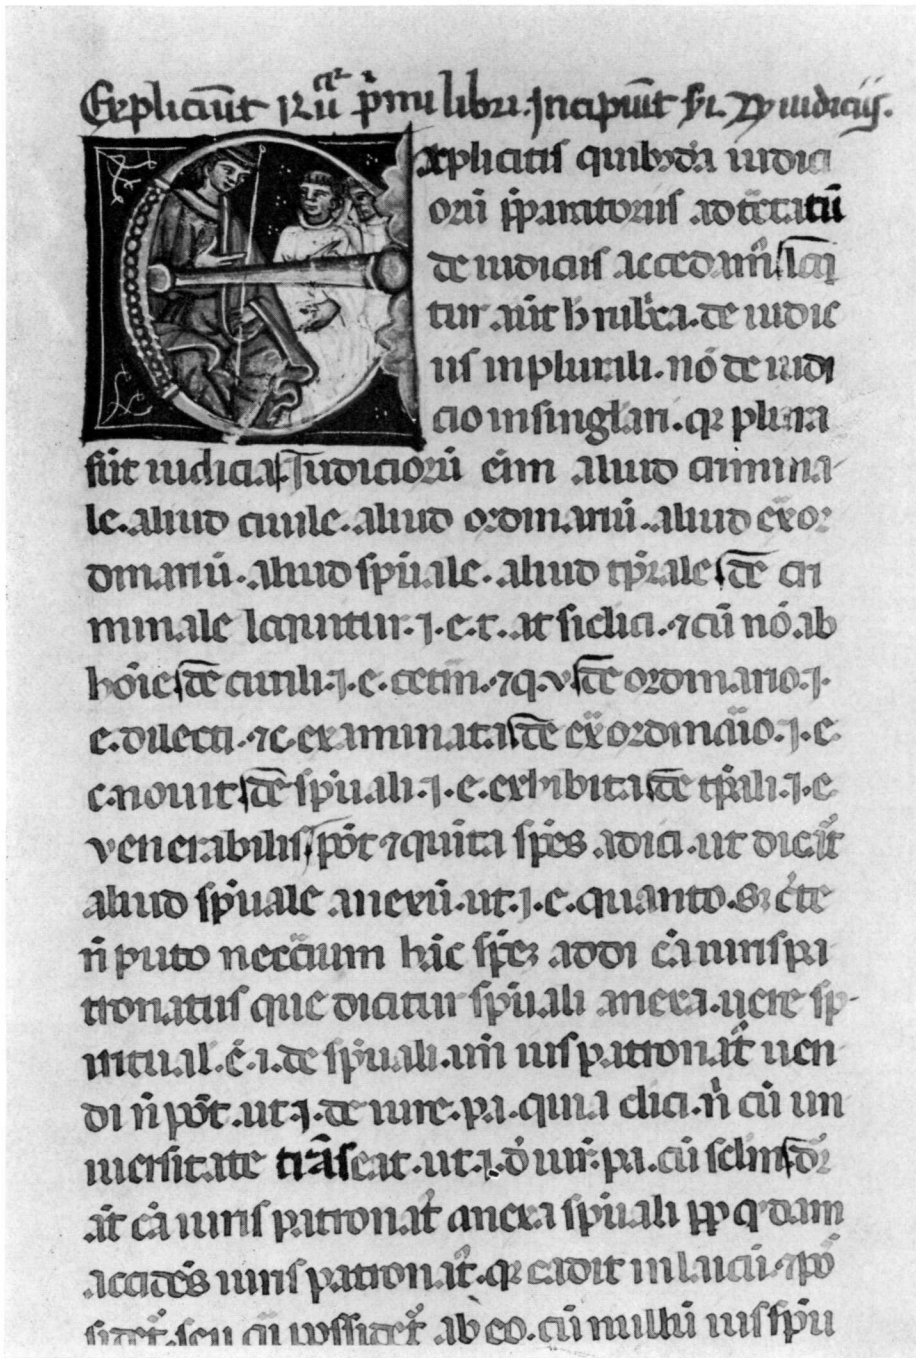 Expliciūt rℓr̄ p̄mi libri. Incipiūt s̄i. De iudiciis.
Explicitis quibusdā iudici
orū p̄paratoriis ad tc̄tatū
de iudiciis accedam᷒ Loq̄
tur aūt h rub᷒ca. de iudic
iis in plurali. nō de iudi
cio in singlari. qr plura
sūt iudicia Iudiciorū eīm aliud crimina
le. aliud ciuile. aliud ordinariū. aliud ex̄or
dinariū. aliud sp̄uale. aliud tp̄rale de cri
minale loquitur. j. e. c. at si clici. ⁊ cū nō ab
hōie de ciuili. j. e. ceterū. ⁊ q. v de ordinario. j.
e. dilecti. ⁊ c. examinata de ex̄ordinaīo. j. e.
c. nouit de sp̄uali. j. e. exhibita de tp̄ali. j. e.
venerabilis pōt ⁊ quīta sp̄es adici. ut dicat᷒
aliud sp̄uale anexū. ut. j. e. quanto. S; c᷒te
n̄ puto necc̄ium hāc sp̄em addi cā iuris pa
tronatus que dicitur sp̄uali anexa. uere sp
iritual. ē. i. de sp̄uali. nā ius patronat᷒ uen
di n̄ pōt. ut. j. de iure. pa. quia clici. n̄ cū un
iuersitate trāseat. ut. j. d᷒ iur. pa. cū seculū dr̄
aūt cā iuris patronat᷒ anexa sp̄uali pp̄ q᷒dam
accidēs iuris patronat᷒. qr cadit in laicū. ⁊ pō
sidet᷒. seu cū possidet᷒ ab eo. cū nullū ius sp̄u